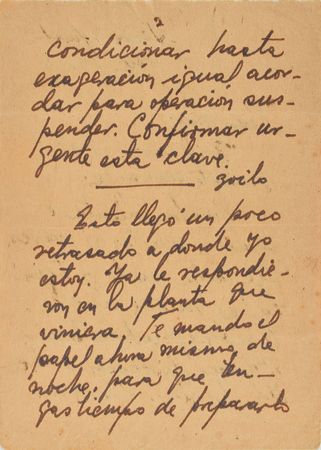 2
Condicionar hasta
exageración igual acor-
dar para operación sus-
pender. Confirmar ur-
gente esta clave.
zoilo
Esto llegó un poco
retrasado a donde yo
estoy. Ya le respondie-
ron en la planta que
viniera. Te mando el
papel ahora mismo, de
noche, para que ten-
gas tiempo de prepararlo